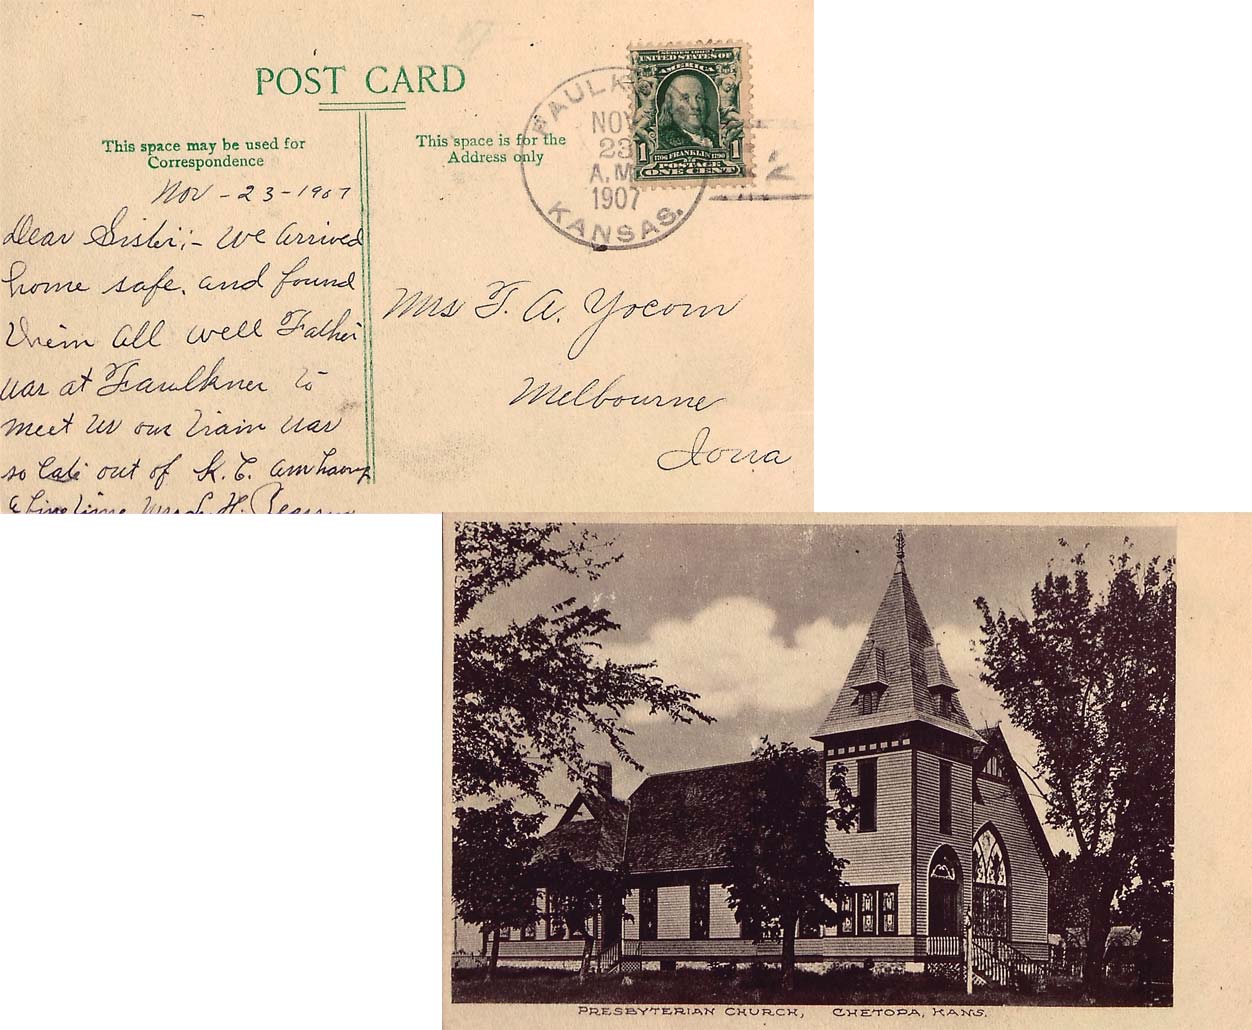 POST CARD
This space may be used for
Correspondence
This space is for the
Address only
FAULK
NOV
23
A.M
1907
KANSAS.
SERIES 1902
UNITED STATES OF
AMERICA
1 1706 FRANKLIN 1790 1
POSTAGE
ONE CENT
2
Nov - 23 - 1907
Dear Sister;- We arrived
home safe. and found
them all well Father
was at Faulkner to
meet us our train was
so late out of K. C. am having
a fine time Mrs H.
Mrs F. A. Yocom
Melbourne
Iowa
PRESBYTERIAN CHURCH, CHETOPA, KANS.